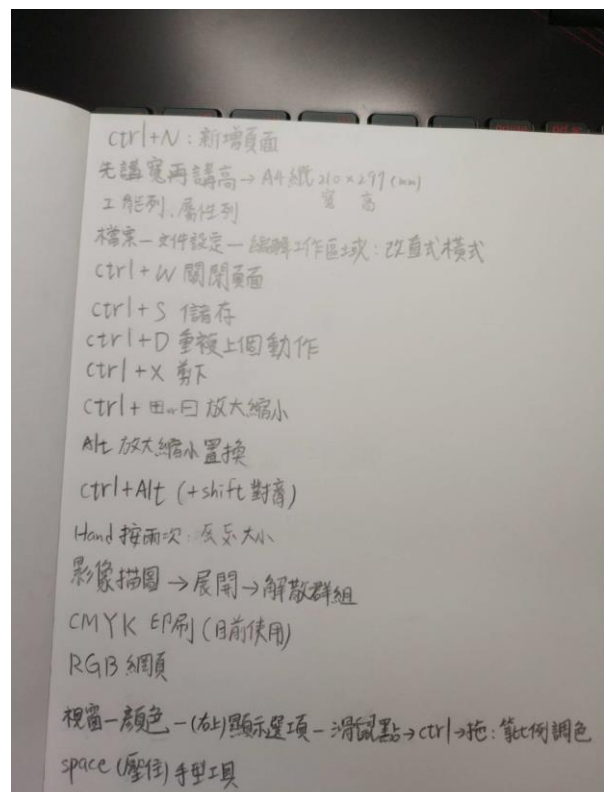 ctrl+N：新增頁面
先講寬再講高→A4紙 210×297(mm)
寬 高
工能列、屬性列
檔案－文件設定－編輯工作區域：改直式橫式
ctrl+W 關閉頁面
ctrl+S 儲存
ctrl+D 重複上個動作
ctrl+X 剪下
ctrl+ ⊞ or ⊟ 放大縮小
Alt 放大縮小置換
ctrl+Alt (+shift 對齊)
Hand 按兩次：大小
影像描圖→展開→解散群組
CMYK 印刷(目前使用)
RGB 網頁
視窗－顏色－(右上)顯示選項－滑鼠點→ctrl→拖：等比例調色
space (壓住) 手型工具